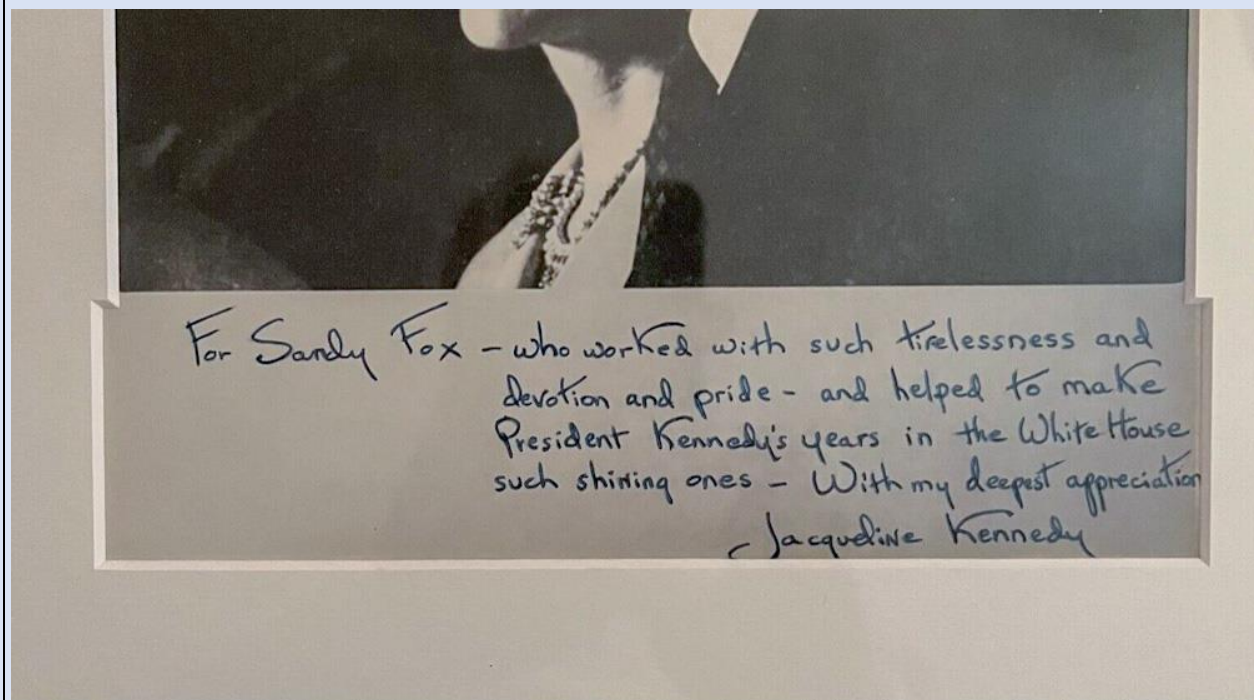 For Sandy Fox - who worked with such tirelessness and
devotion and pride - and helped to make
President Kennedy's years in the White House
such shining ones - With my deepest appreciation
Jacqueline Kennedy